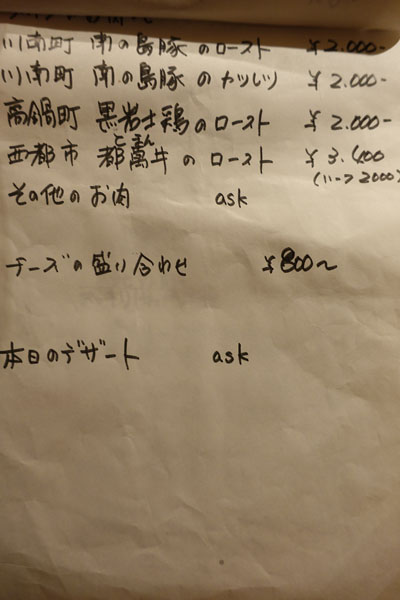 川南町 南の島豚のロースト ¥2.000-
川南町 南の島豚のカツレツ ¥2.000-
高鍋町 黒岩土鶏のロースト ¥2.000-
とまん
西都市 都萬牛のロースト ¥3.400
(ハーフ2000)
その他のお肉 ask
チーズの盛り合わせ ¥800〜
本日のデザート ask